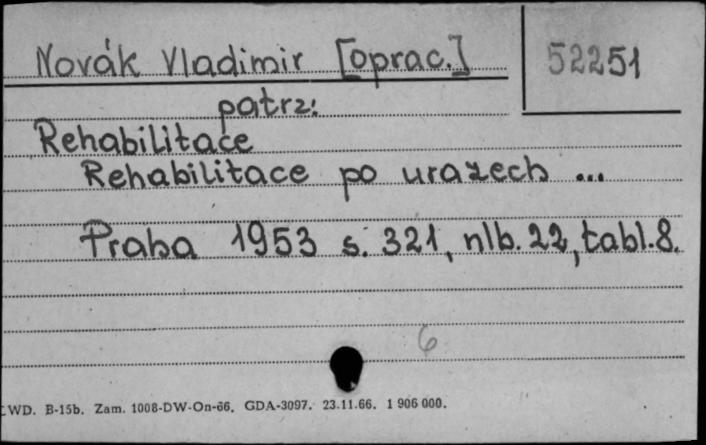 Novák Vladimir [oprac.] 52251
patrz:
Rehabilitace
Rehabilitace po urazech ...
Praha 1953 s. 321, nlb. 22, tabl. 8.
6
WD. B-15b. Zam. 1008-DW-On-66. GDA-3097. 23.11.66. 1 906 000.